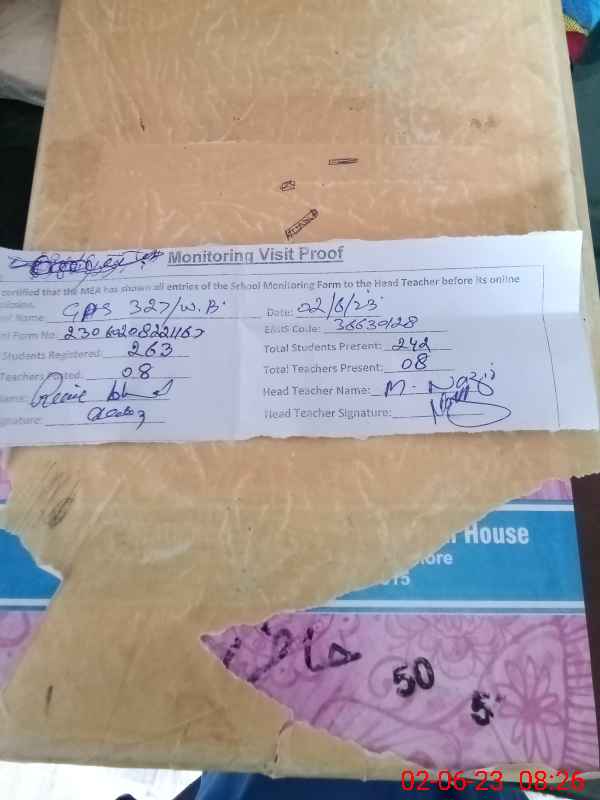 Monitoring Visit Proof
certified that the MEA has shown all entries of the School Monitoring Form to the Head Teacher before its online
Name: GPS 327/W.B. Date: 02/6/23
Form No: EMIS Code: 36630128
Students Registered: 263 Total Students Present: 242
Teachers Posted: 08 Total Teachers Present: 08
Head Teacher Name: M. Nazir
Head Teacher Signature:
House
ore
50
5
02-06-23 08:26